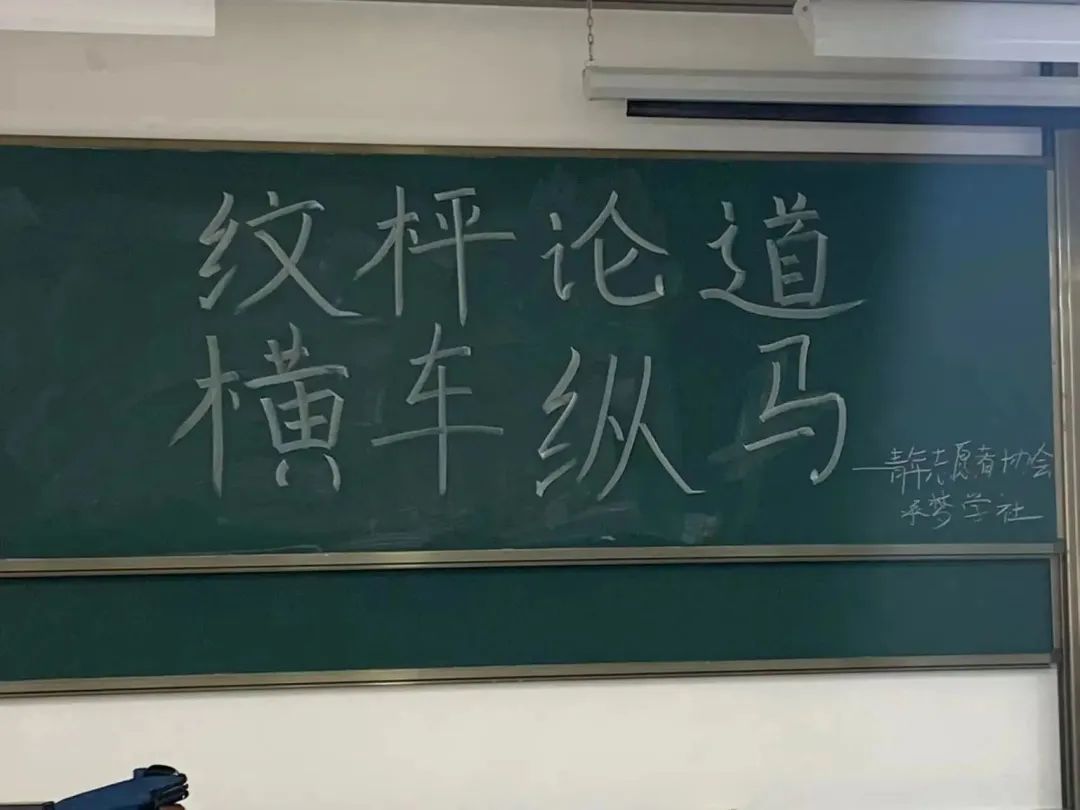 纹枰论道
横车纵马
——青年志愿者协会
梦学社